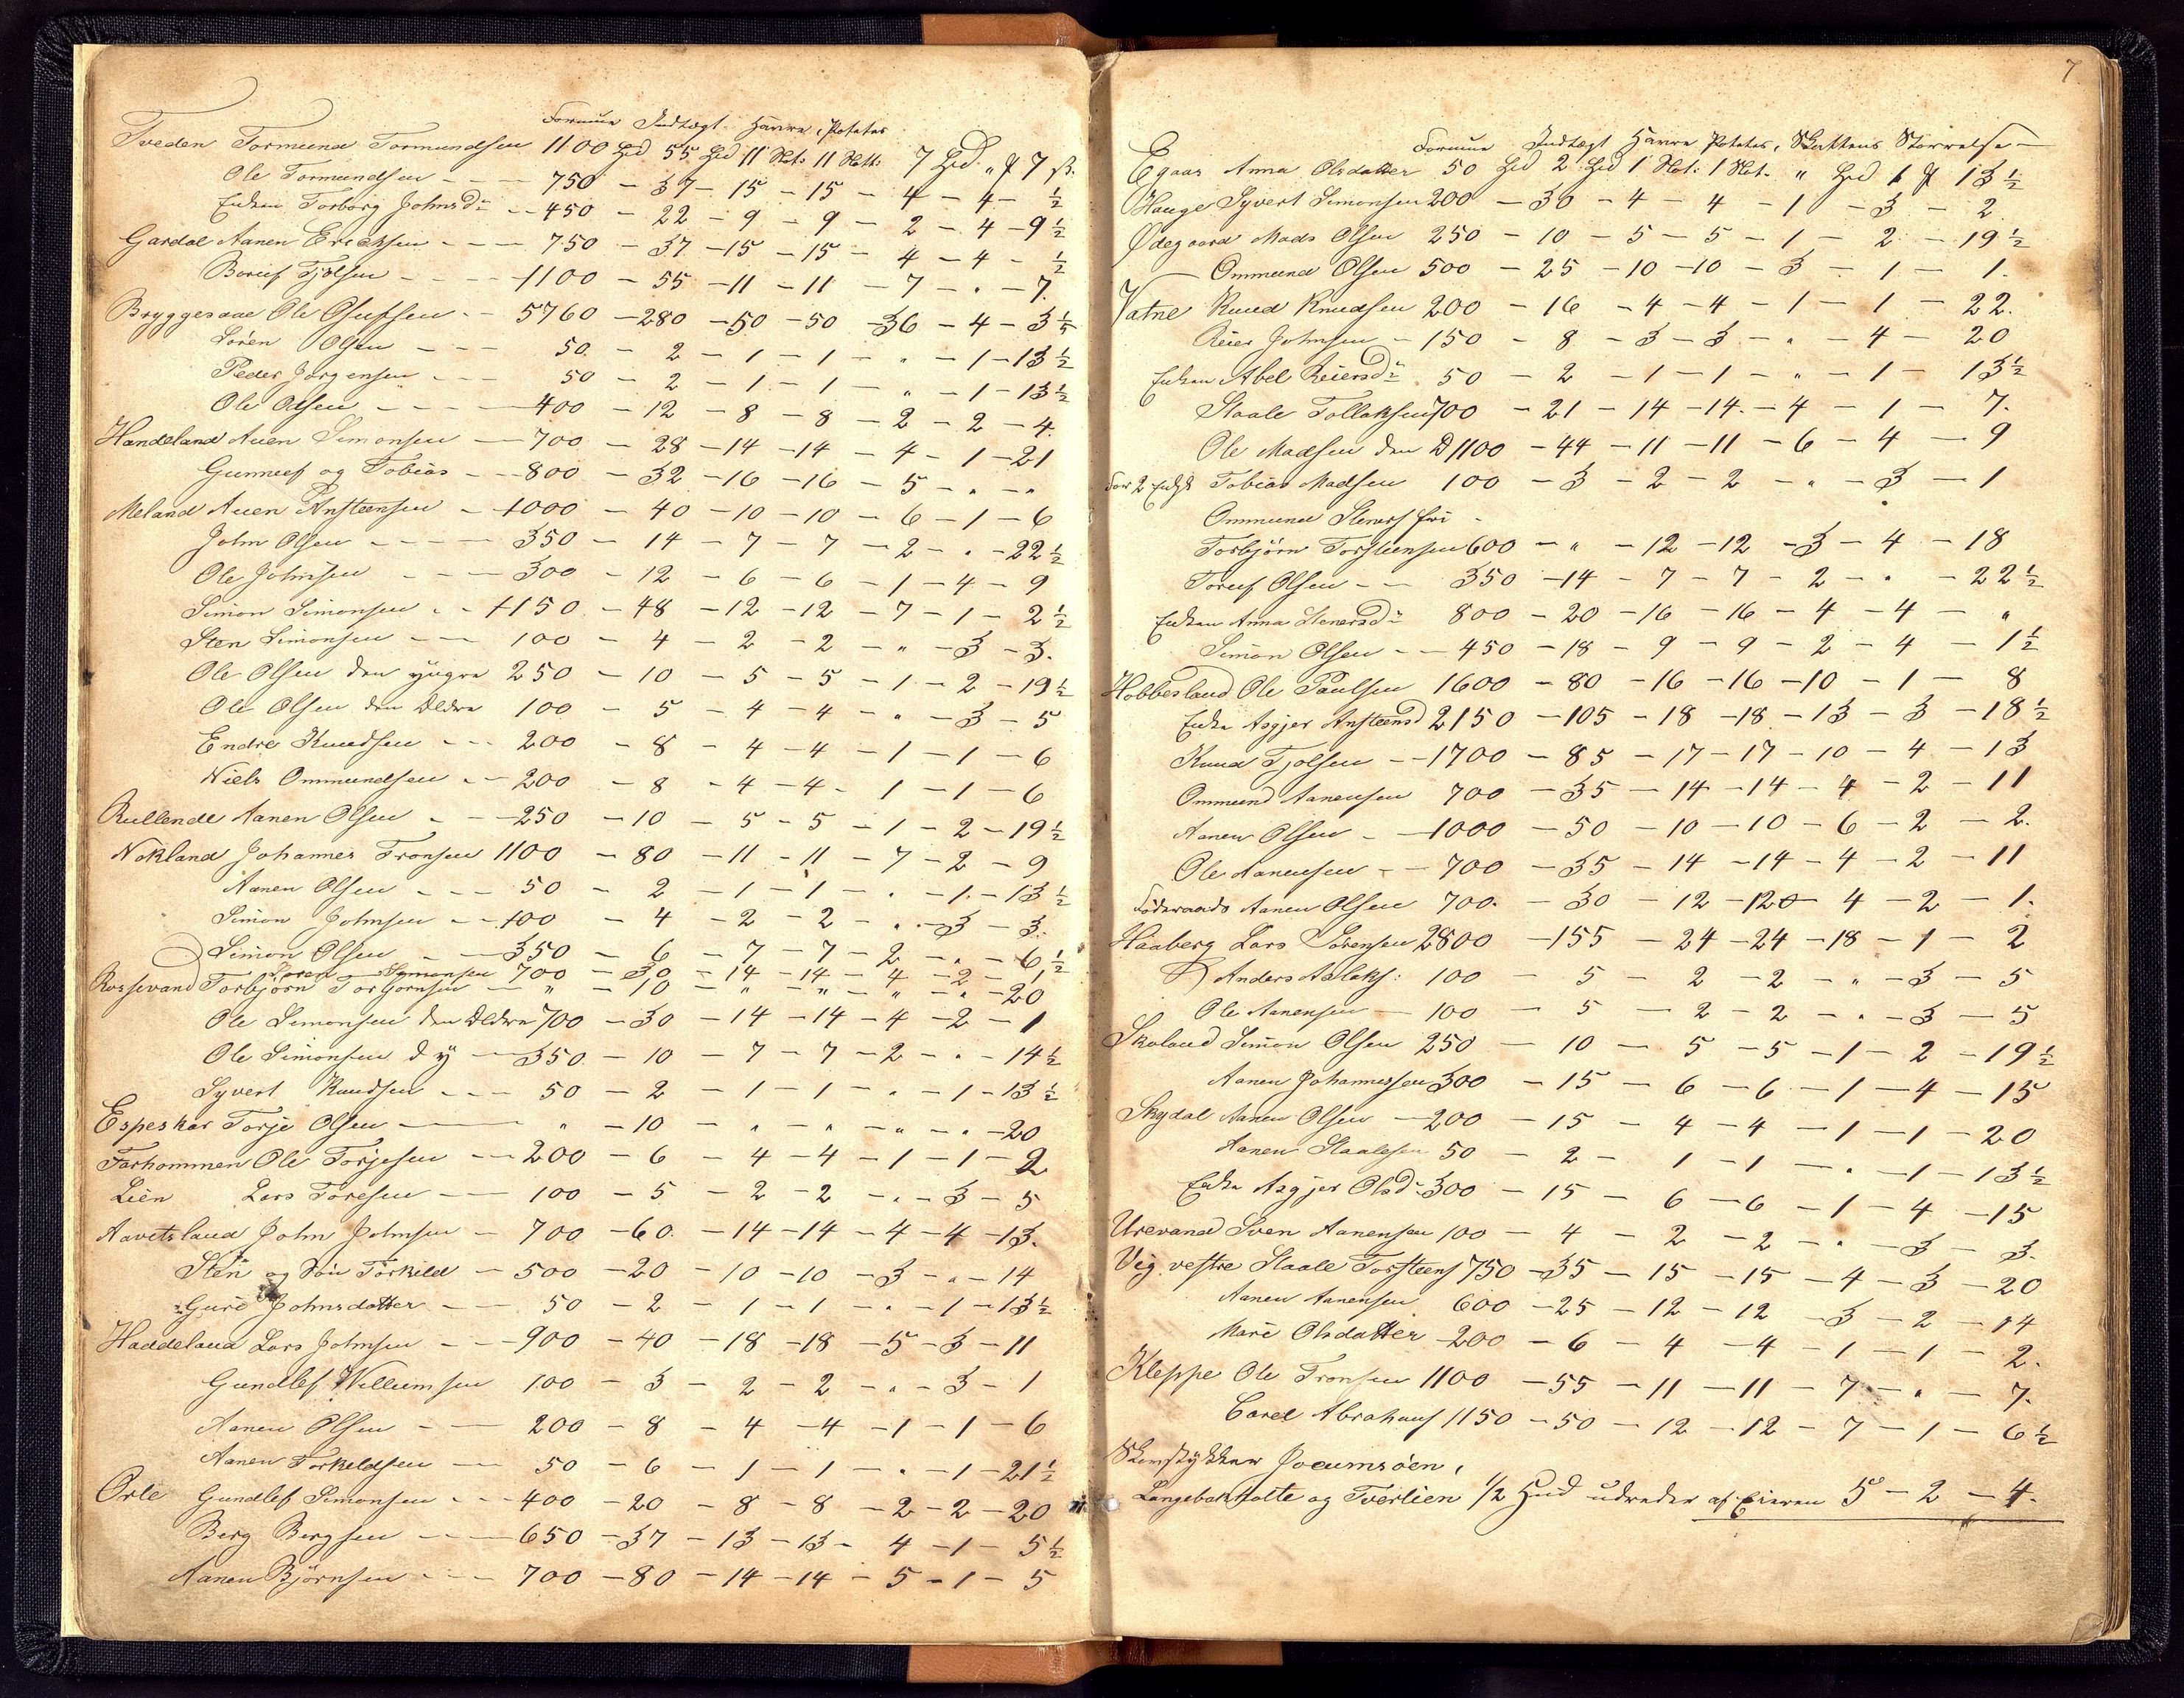 Formue Indtægt Havre, Potetes
Tveden Tormund Tormundsen 1100 Hd 55 Hd 11 Skt: 11 Skt: 7 Hd " 7 ß.
Ole Tormundsen - - - 750 - 37 - 15 - 15 - 4 - 4 - ½
Enken Torborg Johnsdr - - 450 - 22 - 9 - 9 - 2 - 4 - 9½
Gardal Aanen Ericksen - - - 750 - 37 - 15 - 15 - 4 - 4 - ½
Boruf Tjölsen - - - 1100 - 55 - 11 - 11 - 7 - " - 7.
Bryggesaae Ole Olufsen - - 5760 - 280 - 50 - 50 - 36 - 4 - 3½
Sören Olsen - - - 50 - 2 - 1 - 1 - " - 1 - 13½
Peder Jörgensen - - - 50 - 2 - 1 - 1 - " - 1 - 13½
Ole Olsen - - - 400 - 12 - 8 - 8 - 2 - 2 - 4.
Handeland Auen Simonsen - 700 - 28 - 14 - 14 - 4 - 1 - 21
Gunneuf og Tobias - - 800 - 32 - 16 - 16 - 5 - " - "
Meland Auen Ansteensen - 1000 - 40 - 10 - 10 - 6 - 1 - 6
John Olsen - - - - 350 - 14 - 7 - 7 - 2 - " - 22½
Ole Johnsen - - - 300 - 12 - 6 - 6 - 1 - 4 - 9
Simon Simonsen - - 1150 - 48 - 12 - 12 - 7 - 1 - 2½
Sten Simonsen - - - 100 - 4 - 2 - 2 - " - 3 - 3.
Ole Olsen den yngre 250 - 10 - 5 - 5 - 1 - 2 - 19½
Ole Olsen den Eldre 100 - 5 - 4 - 4 - " - 3 - 5
Endre Knudsen - - - 200 - 8 - 4 - 4 - 1 - 1 - 6
Niels Ommundsen - - 200 - 8 - 4 - 4 - 1 - 1 - 6
Rullende Aanen Olsen - - 250 - 10 - 5 - 5 - 1 - 2 - 19½
Nokland Johannes Tronsen 1100 - 80 - 11 - 11 - 7 - 2 - 9
Aanen Olsen - - - 50 - 2 - 1 - 1 - " - 1 - 13½
Simon Johnsen - - 100 - 4 - 2 - 2 - " - 3 - 3.
Simon Olsen - - 350 - 6 - 7 - 7 - 2 - " - 6½
Sören Symonsen 700 - 30 - 14 - 14 - 4 - 2 - 1
Rossevand Torbjörn Torgjörnsen - - " - 10 - " - " - " - " - 20
Ole Simonsen den Eldre 700 - 30 - 14 - 14 - 4 - 2 - 1
Ole Simonsen d y - 350 - 10 - 7 - 7 - 2 - " - 14½
Syvert Knudsen - - - 50 - 2 - 1 - 1 - " - 1 - 13½
Espeskar Torje Olsen - " - 10 - " - " - " - " - 20
Farhommen Ole Torjesen - - 200 - 6 - 4 - 4 - 1 - 1 - 2
Lien Lars Toresen - - 100 - 5 - 2 - 2 - " - 3 - 5
Aavetsland John Johnsen - 700 - 60 - 14 - 14 - 4 - 4 - 13.
Sten og Sön Törkild - 500 - 20 - 10 - 10 - 3 - " - 14
Gure Johnsdatter - - 50 - 2 - 1 - 1 - " - 1 - 13½
Haddeland Lars Johnsen - - 900 - 40 - 18 - 18 - 5 - 3 - 11
Gundlef Willumsen 100 - 3 - 2 - 2 - " - 3 - 1
Aanen Olsen - - - 200 - 8 - 4 - 4 - 1 - 1 - 6
Aanen Torkeldsen - - 50 - 6 - 1 - 1 - " - 1 - 21½
Örle Gundlef Simonsen - - 400 - 20 - 8 - 8 - 2 - 2 - 20
Berg Bergsen - - - 650 - 37 - 13 - 13 - 4 - 1 - 5½
Aanen Björnsen - - - 700 - 80 - 14 - 14 - 5 - 1 - 5
7
Formue Indtægt Havre Potetes, Skattens Störrelse
Egaas Anna Olsdatter 50 Hd 2 Hd 1 Skt: 1 Skt. " Hd 1 13½
Hauge Syvert Simonsen 200 - 30 - 4 - 4 - 1 - 3 - 2.
Ödegaard Mads Olsen 250 - 10 - 5 - 5 - 1 - 2 - 19½
Ommund Olsen 500 - 25 - 10 - 10 - 3 - 1 - 1.
Vatne Knud Knudsen 200 - 16 - 4 - 4 - 1 - 1 - 22.
Reier Johnsen - 150 - 8 - 3 - 3 - " - 4 - 20
Enken Abel Reiersdr 50 - 2 - 1 - 1 - " - 1 - 13½
Staale Tollaksen 700 - 21 - 14 - 14 - 4 - 1 - 7.
Ole Madsen den Æ 1100 - 44 - 11 - 11 - 6 - 4 - 9
Tobias Madsen 100 - 3 - 2 - 2 - " - 3 - 1
Ommund Steners fri -
Torbjörn Torsteensen 600 - " - 12 - 12 - 3 - 4 - 18
Toruf Olsen - - 350 - 14 - 7 - 7 - 2 - " - 22½
Enken Anna Stenersdr 800 - 20 - 16 - 16 - 4 - 4 - "
Simon Olsen - - 450 - 18 - 9 - 9 - 2 - 4 - 1½
Hobbesland Ole Paulsen 1600 - 80 - 16 - 16 - 10 - 1 - 8
Enke Asgjer Ansteensd 2150 - 105 - 18 - 18 - 13 - 3 - 18½
Knud Tjölsen - 1700 - 85 - 17 - 17 - 10 - 4 - 13
Ommund Aanensen 700 - 35 - 14 - 14 - 4 - 2 - 11
Aanen Olsen - 1000 - 50 - 10 - 10 - 6 - 2 - 2.
Ole Aanensen - - 700 - 35 - 14 - 14 - 4 - 2 - 11
Föderaads Aanen Olsen 700 - 30 - 12 - 12 - 4 - 2 - 1.
Haaberg Lars Sörensen 2800 - 155 - 24 - 24 - 18 - 1 - 2
Anders Aslaks: 100 - 5 - 2 - 2 - " - 3 - 5
Ole Aanensen - 100 - 5 - 2 - 2 - " - 3 - 5
Skoland Simon Olsen 250 - 10 - 5 - 5 - 1 - 2 - 19½
Aanen Johannessen 300 - 15 - 6 - 6 - 1 - 4 - 15
Skydal Aanen Olsen - 200 - 15 - 4 - 4 - 1 - 1 - 20
Aanen Staalesen 50 - 2 - 1 - 1 - " - 1 - 13½
Enke Asgjer Olsdr 300 - 15 - 6 - 6 - 1 - 4 - 15
Urevand Sven Aanensen 100 - 4 - 2 - 2 - " - 3 - 3.
Vig vestre Staale Torsteens 750 - 35 - 15 - 15 - 4 - 3 - 20
Aanen Aanensen 600 - 25 - 12 - 12 - 3 - 2 - 14
Mare Olsdatter 200 - 6 - 4 - 4 - 1 - 1 - 2.
Kleppe Ole Tronsen 1100 - 55 - 11 - 11 - 7 - " - 7.
Carel Abrahams 1150 - 50 - 12 - 12 - 7 - 1 - 6½
Jocumsöen,
Langebakholte og Tverlien ½ Hud udreder af Eieren 5 - 2 - 4.